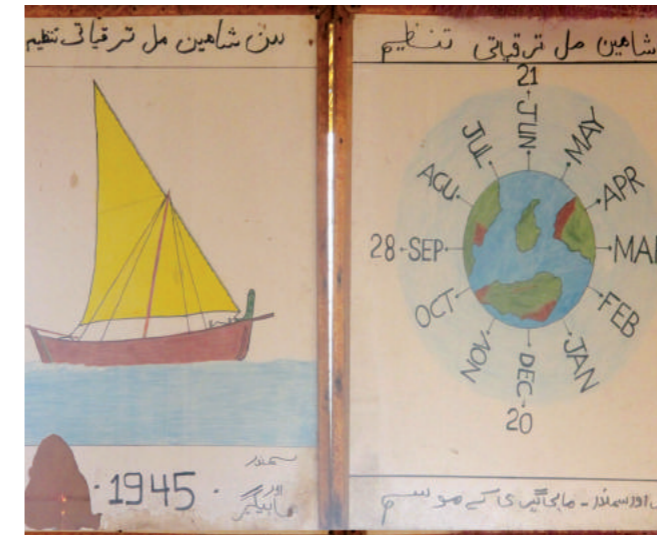 سن شاھین مل ترقیاتی تنظیم
سمندر
اور
ماہیگیر
1945
شاھین مل ترقیاتی تنظیم
21
JUN
MAY
APR
MAR
FEB
JAN
DEC
20
NOV
OCT
28-SEP
AGU
JUL
اور سمندر - ماہی گیری کے موسم